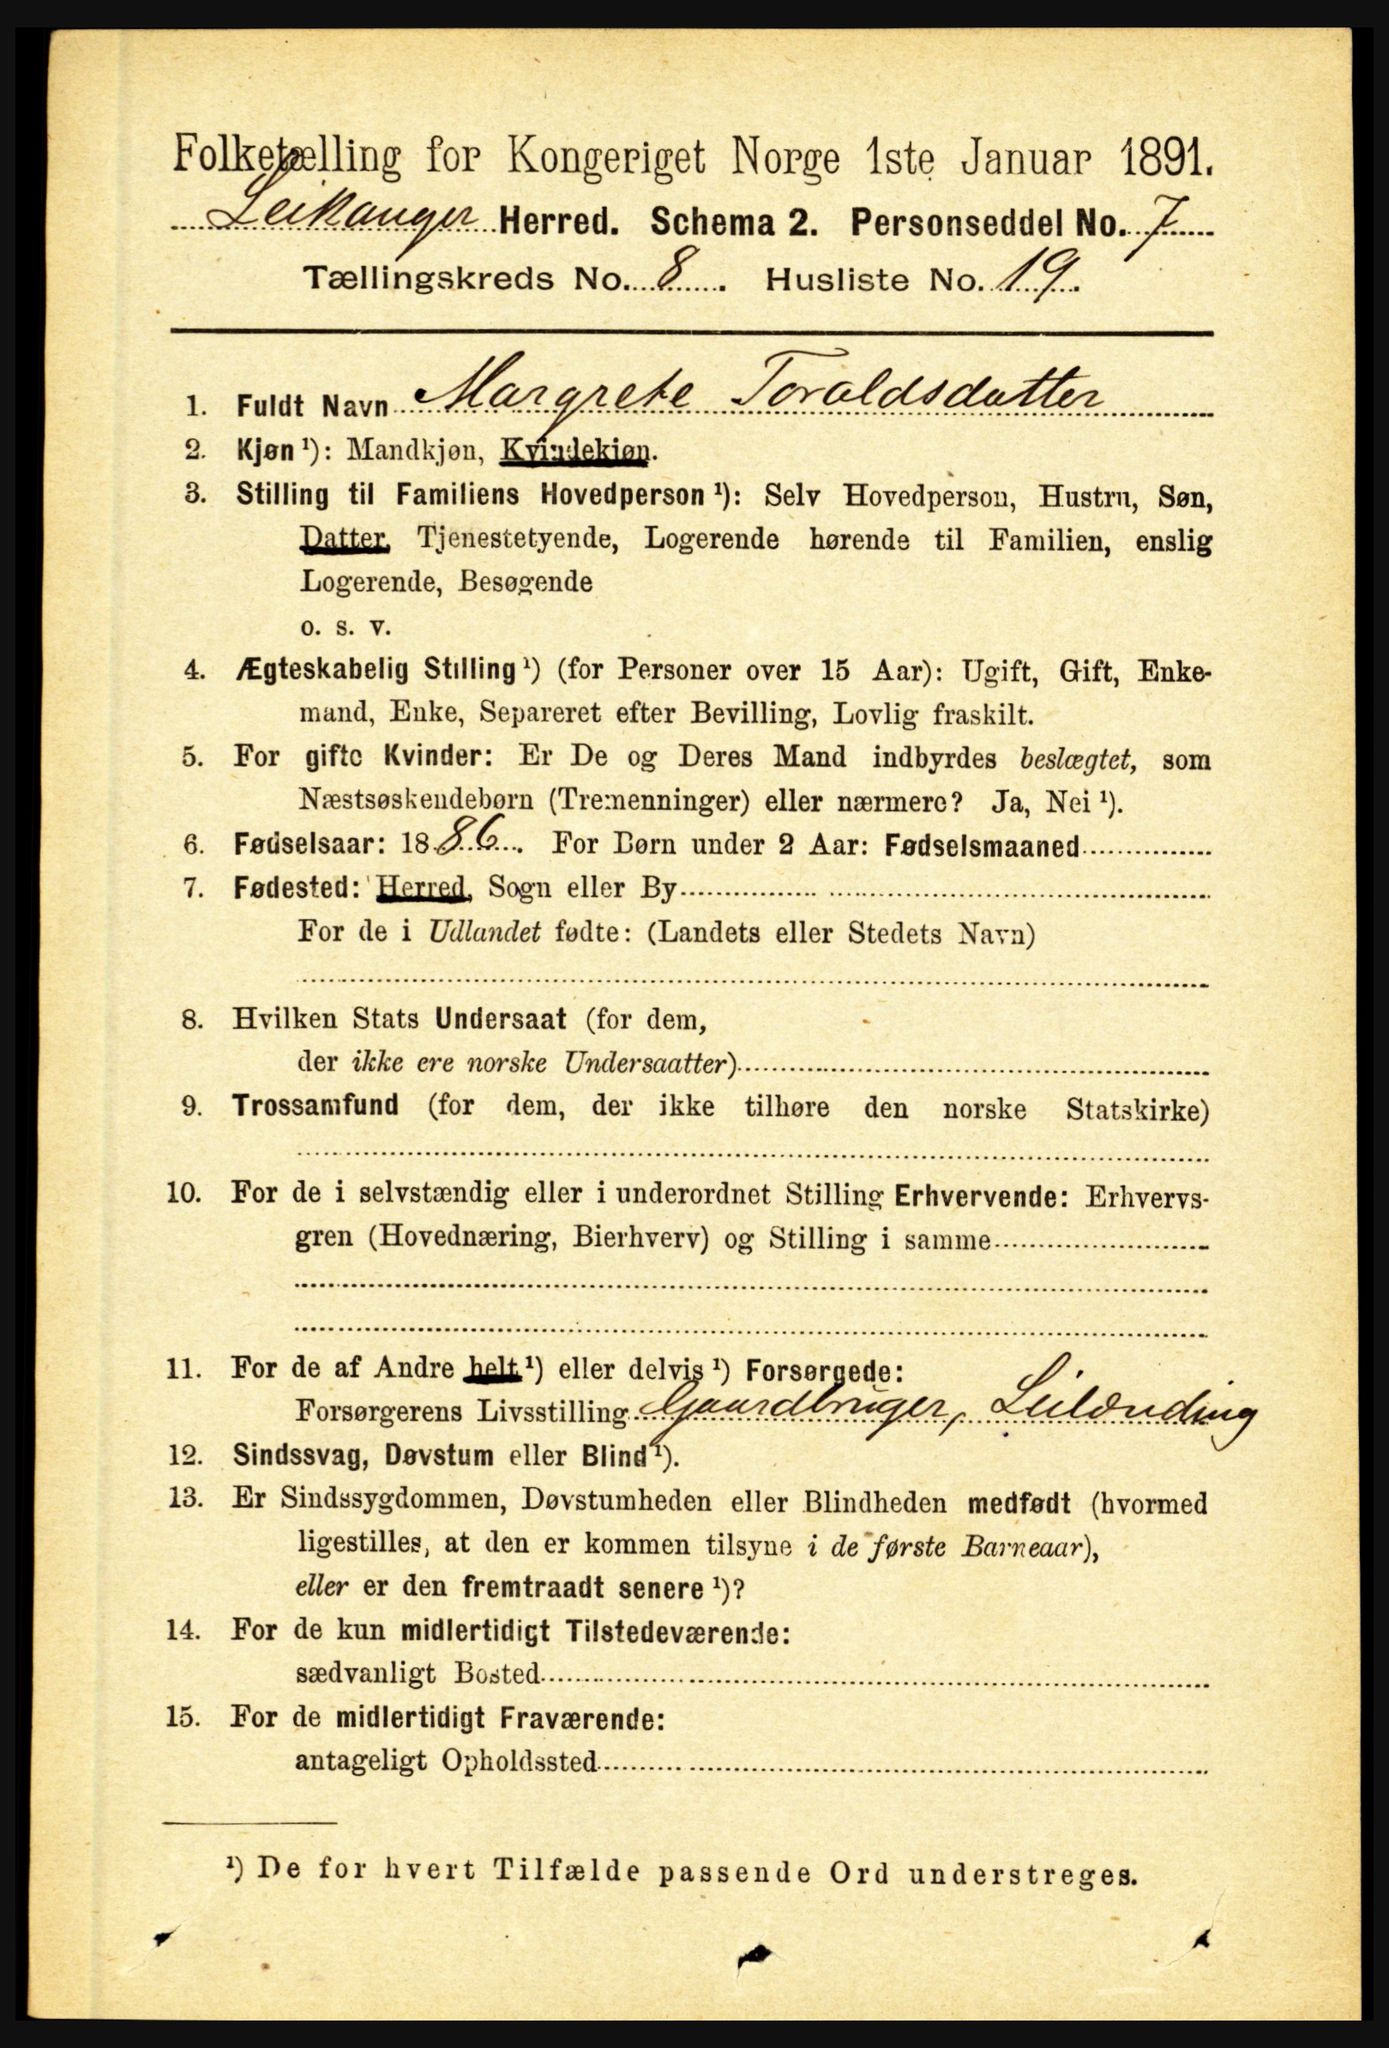 Folketælling for Kongeriget Norge 1ste Januar 1891.
Leikanger Herred. Schema 2. Personseddel No. 7
Tællingskreds No. 8. Husliste No. 19.
1. Fuldt Navn Margrete Toraldsdatter
2. Kjøn ¹): Mandkjøn, Kvindekjøn.
3. Stilling til Familiens Hovedperson ¹): Selv Hovedperson, Hustru, Søn,
Datter, Tjenestetyende, Logerende hørende til Familien, enslig
Logerende, Besøgende
o. s. v.
4. Ægteskabelig Stilling ¹) (for Personer over 15 Aar): Ugift, Gift, Enke-
mand, Enke, Separeret efter Bevilling, Lovlig fraskilt.
5. For gifte Kvinder: Er De og Deres Mand indbyrdes beslægtet, som
Næstsøskendebørn (Tremenninger) eller nærmere? Ja, Nei ¹).
6. Fødselsaar: 1886. For Børn under 2 Aar: Fødselsmaaned
7. Fødested: Herred, Sogn eller By
For de i Udlandet fødte: (Landets eller Stedets Navn)
8. Hvilken Stats Undersaat (for dem,
der ikke ere norske Undersaatter)
9. Trossamfund (for dem, der ikke tilhøre den norske Statskirke)
10. For de i selvstændig eller i underordnet Stilling Erhvervende: Erhvervs-
gren (Hovednæring, Bierhverv) og Stilling i samme
11. For de af Andre helt ¹) eller delvis ¹) Forsørgede:
Forsørgerens Livsstilling Gaardbruger, Leilænding
12. Sindssvag, Døvstum eller Blind ¹).
13. Er Sindssygdommen, Døvstumheden eller Blindheden medfødt (hvormed
ligestilles, at den er kommen tilsyne i de første Barneaar),
eller er den fremtraadt senere ¹)?
14. For de kun midlertidigt Tilstedeværende:
sædvanligt Bosted
15. For de midlertidigt Fraværende:
antageligt Opholdssted
¹) De for hvert Tilfælde passende Ord understreges.